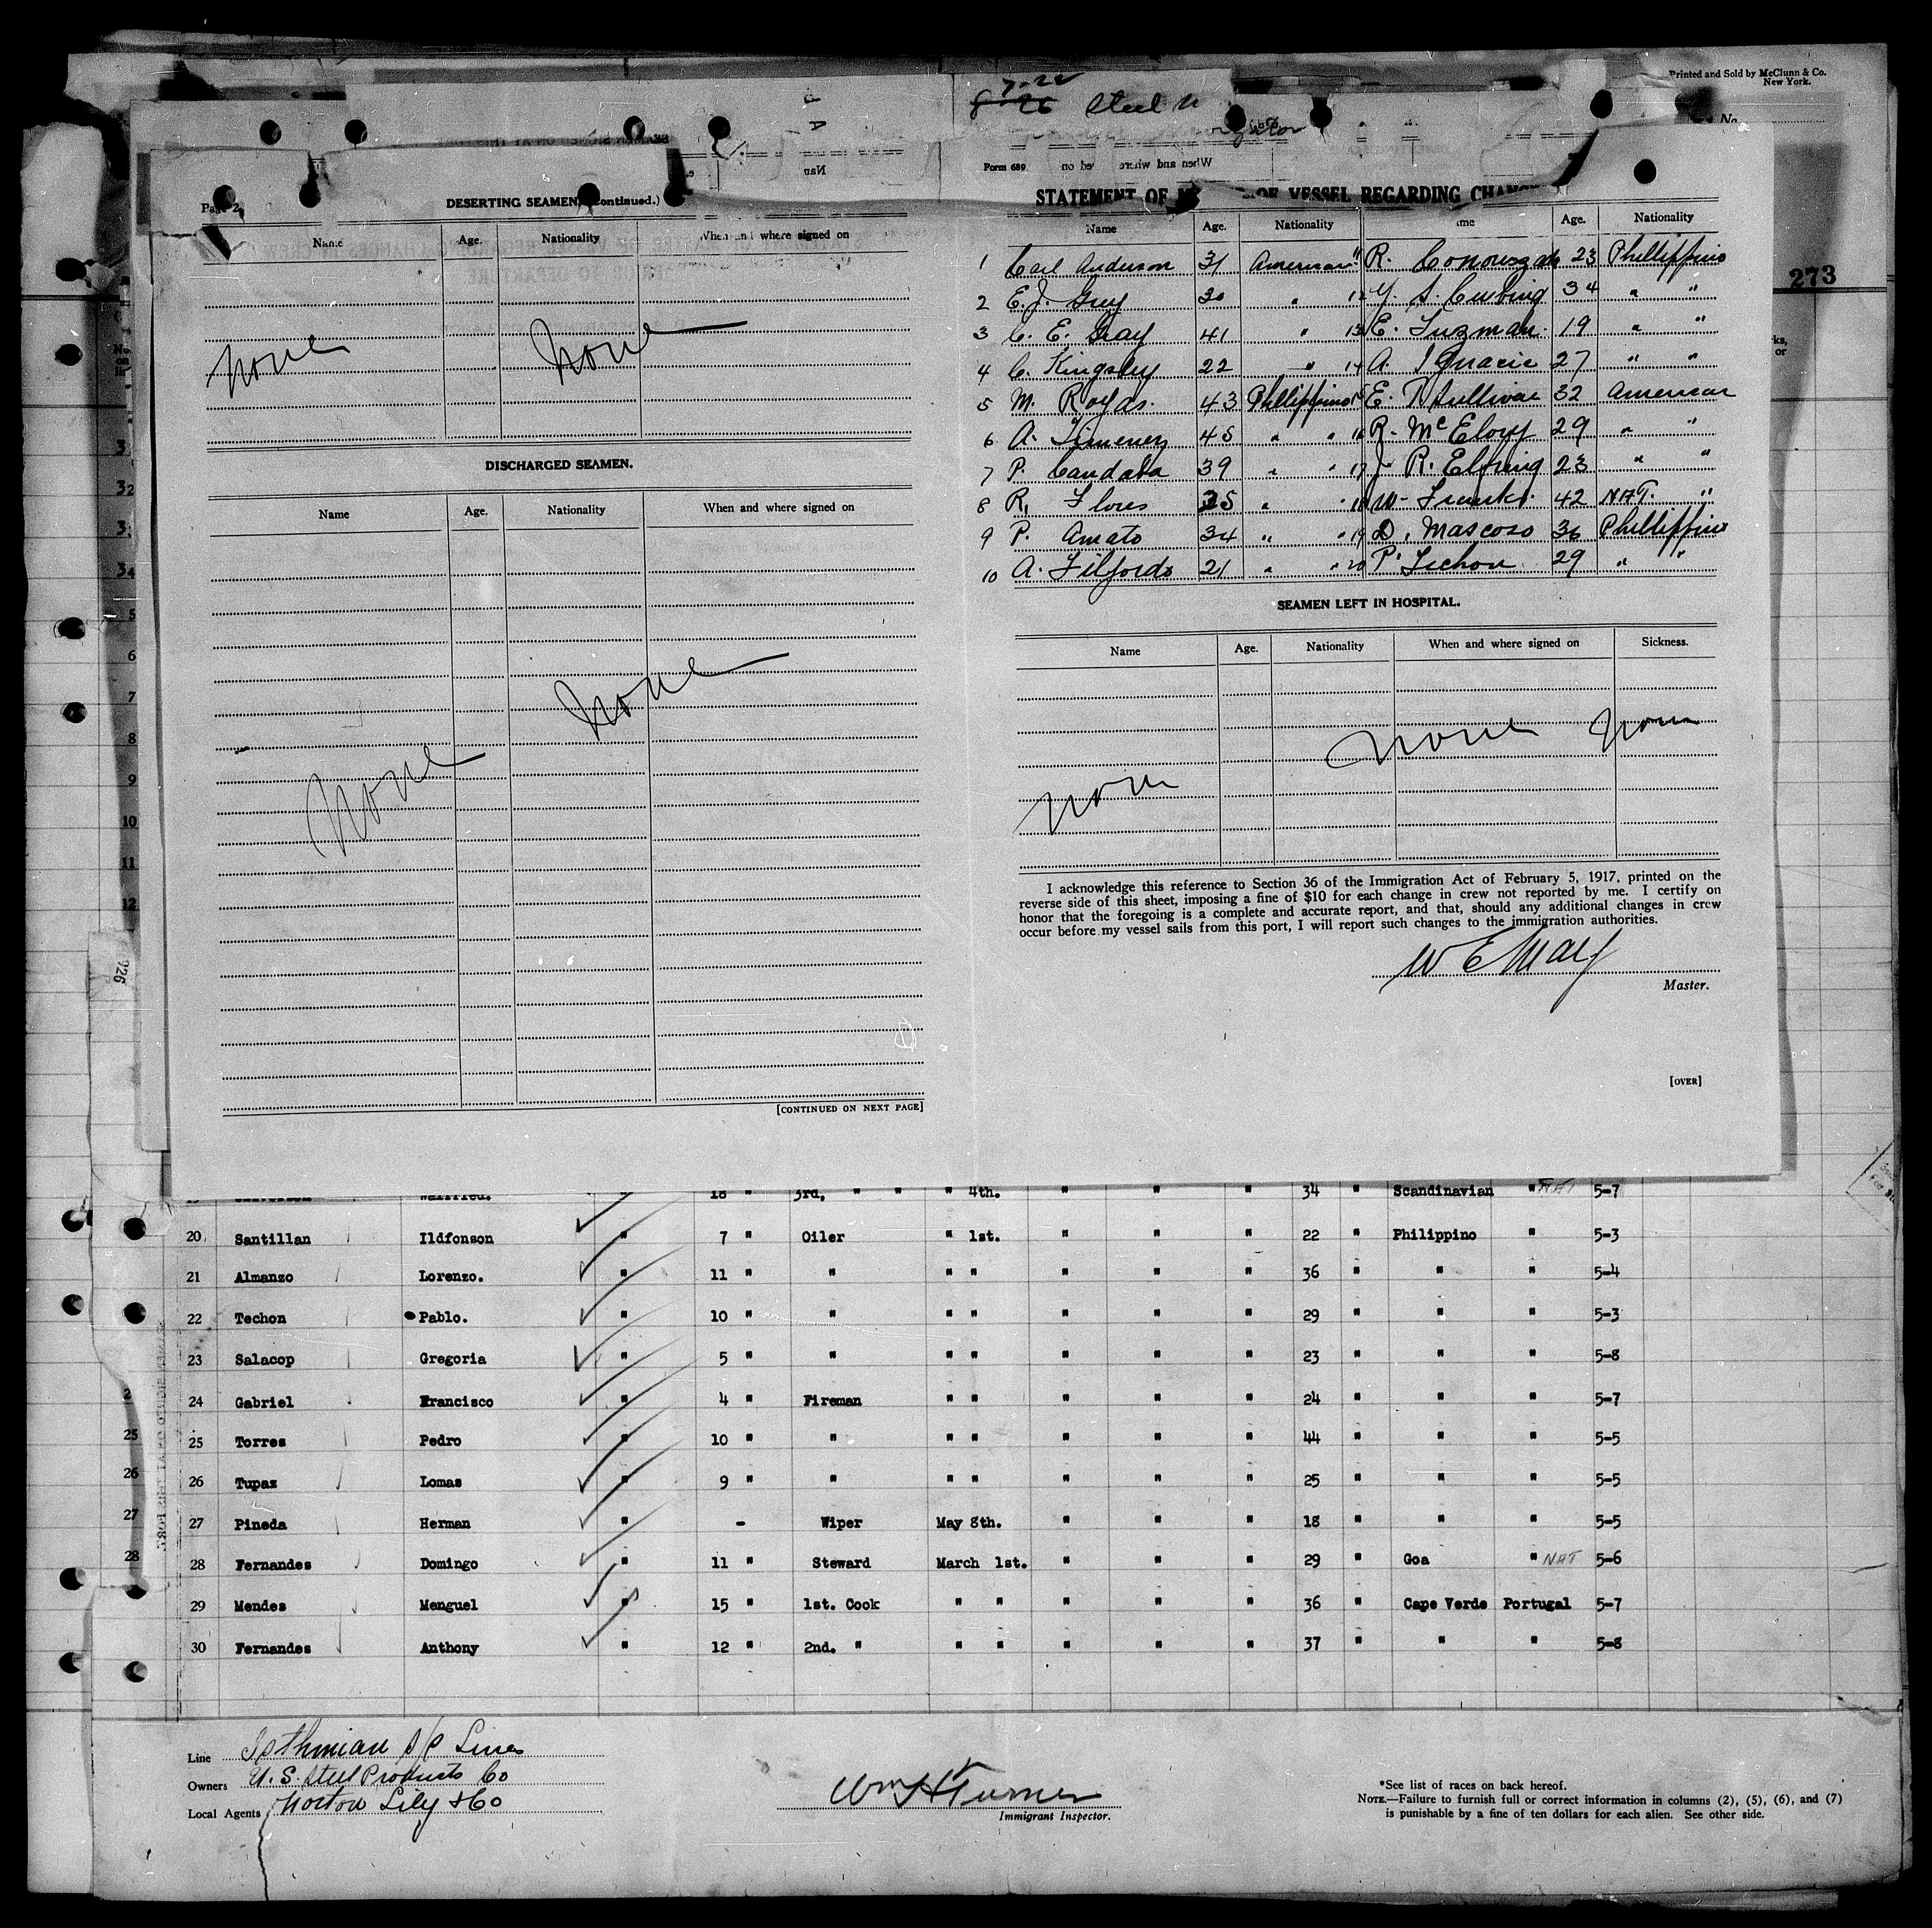 Printed and Sold by McClunn & Co.
New York.
No.
7-22
8-26 Steel N
Form 689
When and where
STATEMENT OF OF VESSEL REGARDING
273
Page 2
DESERTING SEAMEN. (Continued.)
Name Age. Nationality When and where signed on
None None
DISCHARGED SEAMEN.
Name Age. Nationality When and where signed on
None
None
[CONTINUED ON NEXT PAGE]
Name Age. Nationality Name Age. Nationality
1 Carl Anderson 31 American 11 R. 23 Phillippino
2 E. J. Grey 30 " 12 Y. S. Cumbing 34 " "
3 C. E. Gray 41 " 13 E. Luzman 19 " "
4 C. Kingsley 22 " 14 A. Ignacie 27 " "
5 M. Royas. 43 Phillippino 15 E. T Sullivan 32 American
6 A. Jimenez 45 " " 16 R. McElory 29 " "
7 P. Candaba 39 " " 17 J. R. 23 " "
8 R. Flores 35 " " 18 W. 42 NAT. "
9 P. Amato 34 " " 19 D. Mascoso 36 Phillippino
10 A. Filfordo 21 " " 20 P. Techon 29 " "
SEAMEN LEFT IN HOSPITAL.
Name Age. Nationality When and where signed on Sickness.
None None None
I acknowledge this reference to Section 36 of the Immigration Act of February 5, 1917, printed on the
reverse side of this sheet, imposing a fine of $10 for each change in crew not reported by me. I certify on
honor that the foregoing is a complete and accurate report, and that, should any additional changes in crew
occur before my vessel sails from this port, I will report such changes to the immigration authorities.
W E May
Master.
[OVER]
18 " 3rd, " " " 4th. " " " 34 " Scandinavian " NAT 5-7
20 Santillan Ildfonson " 7 " Oiler " 1st. " " " 22 " Philippino " 5-3
21 Almanzo Lorenzo. " 11 " " " " " " " 36 " " " 5-4
22 Techon Pablo. " 10 " " " " " " " 29 " " " 5-3
23 Salacop Gregoria " 5 " " " " " " " 23 " " " 5-8
24 Gabriel Francisco " 4 " Fireman " " " " " 24 " " " 5-7
25 Torres Pedro " 10 " " " " " " " 44 " " " 5-5
26 Tupaz Lomas " 9 " " " " " " " 25 " " " 5-5
27 Pineda Herman " - Wiper May 8th. " " " 18 " " " 5-5
28 Fernandes Domingo " 11 " Steward March 1st. " " " 29 " Goa " NAT 5-6
29 Mendes Menguel " 15 " 1st. Cook " " " " " 36 " Cape Verde Portugal 5-7
30 Fernandes Anthony " 12 " 2nd. " " " " " " 37 " " " 5-8
Line Isthmian S/S Lines
Owners U. S. Steel Products Co
Local Agents Norton Lily & Co
Wm H Turner
Immigrant Inspector.
*See list of races on back hereof.
NOTE.—Failure to furnish full or correct information in columns (2), (5), (6), and (7)
is punishable by a fine of ten dollars for each alien. See other side.